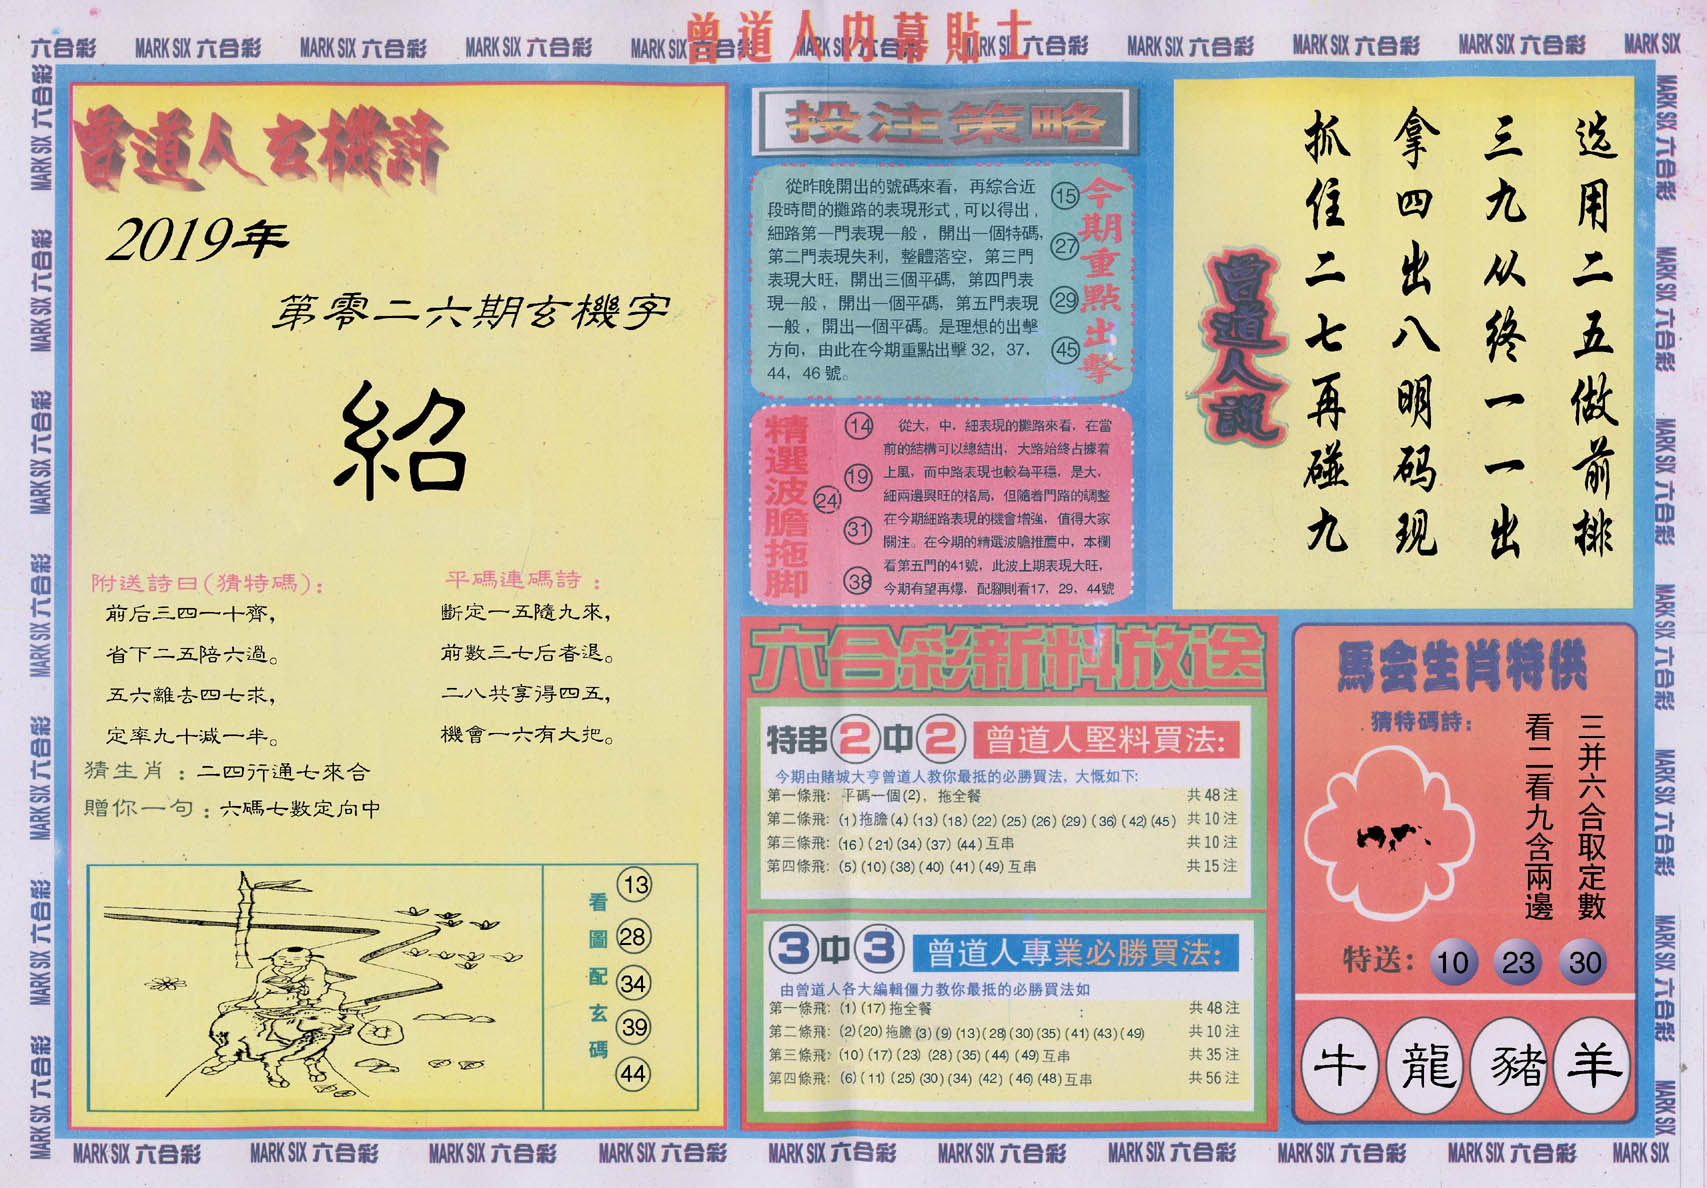 曾道人内幕貼士
六合彩 MARK SIX 六合彩 MARK SIX 六合彩 MARK SIX 六合彩 MARK SIX 六合彩 MARK SIX 六合彩 MARK SIX 六合彩 MARK SIX 六合彩 MARK SIX 六合彩 MARK SIX 六合彩 MARK SIX
曾道人玄機詩
2019年
第零二六期玄機字
紹
附送詩曰(猜特碼):
前后三四一十齊,
省下二五陪六過。
五六離去四七求,
定率九十減一半。
平碼連碼詩:
斷定一五隨九來,
前數三七后者退。
二八共享得四五,
機會一六有大把。
猜生肖:二四行通七來合
贈你一句:六碼七數定向中
看圖配玄碼
13
28
34
39
44
投注策略
今期重點出擊
15
27
29
45
從昨晚開出的號碼來看,再綜合近
段時間的攤路的表現形式,可以得出,
細路第一門表現一般,開出一個特碼,
第二門表現失利,整體落空,第三門
表現大旺,開出三個平碼,第四門表
現一般,開出一個平碼,第五門表現
一般,開出一個平碼。是理想的出擊
方向,由此在今期重點出擊32,37,
44,46號。
精選波膽拖脚
14
19
24
31
38
從大,中,細表現的攤路來看,在當
前的結構可以總結出,大路始終占據着
上風,而中路表現也較為平穩,是大,
細兩邊興旺的格局,但隨着門路的調整
在今期細路表現的機會增強,值得大家
關注。在今期的精選波膽推薦中,本欄
看第五門的41號,此波上期表現大旺,
今期有望再爆,配腳則看17,29,44號
曾道人說
选用二五做前排
三九从终一一出
拿四出八明码现
抓住二七再碰九
六合彩新料放送
特串2中2 曾道人堅料買法:
今期由賭城大亨曾道人教你最抵的必勝買法,大慨如下:
第一條飛:平碼一個(2),拖全餐 共48注
第二條飛:(1)拖膽(4)(13)(18)(22)(25)(26)(29)(36)(42)(45) 共10注
第三條飛:(16)(21)(34)(37)(44)互串 共10注
第四條飛:(5)(10)(38)(40)(41)(49)互串 共15注
3中3 曾道人專業必勝買法:
由曾道人各大編輯僵力教你最抵的必勝買法如
第一條飛:(1)(17)拖全餐 共48注
第二條飛:(2)(20)拖膽(3)(9)(13)(28)(30)(35)(41)(43)(49) 共10注
第三條飛:(10)(17)(23)(28)(35)(44)(49)互串 共35注
第四條飛:(6)(11)(25)(30)(34)(42)(46)(48)互串 共56注
馬会生肖特供
猜特碼詩:
三并六合取定數
看二看九含兩邊
特送: 10 23 30
牛 龍 豬 羊
MARK SIX 六合彩 MARK SIX 六合彩 MARK SIX 六合彩 MARK SIX 六合彩 MARK SIX 六合彩 MARK SIX 六合彩 MARK SIX 六合彩 MARK SIX 六合彩 MARK SIX 六合彩 MARK SIX